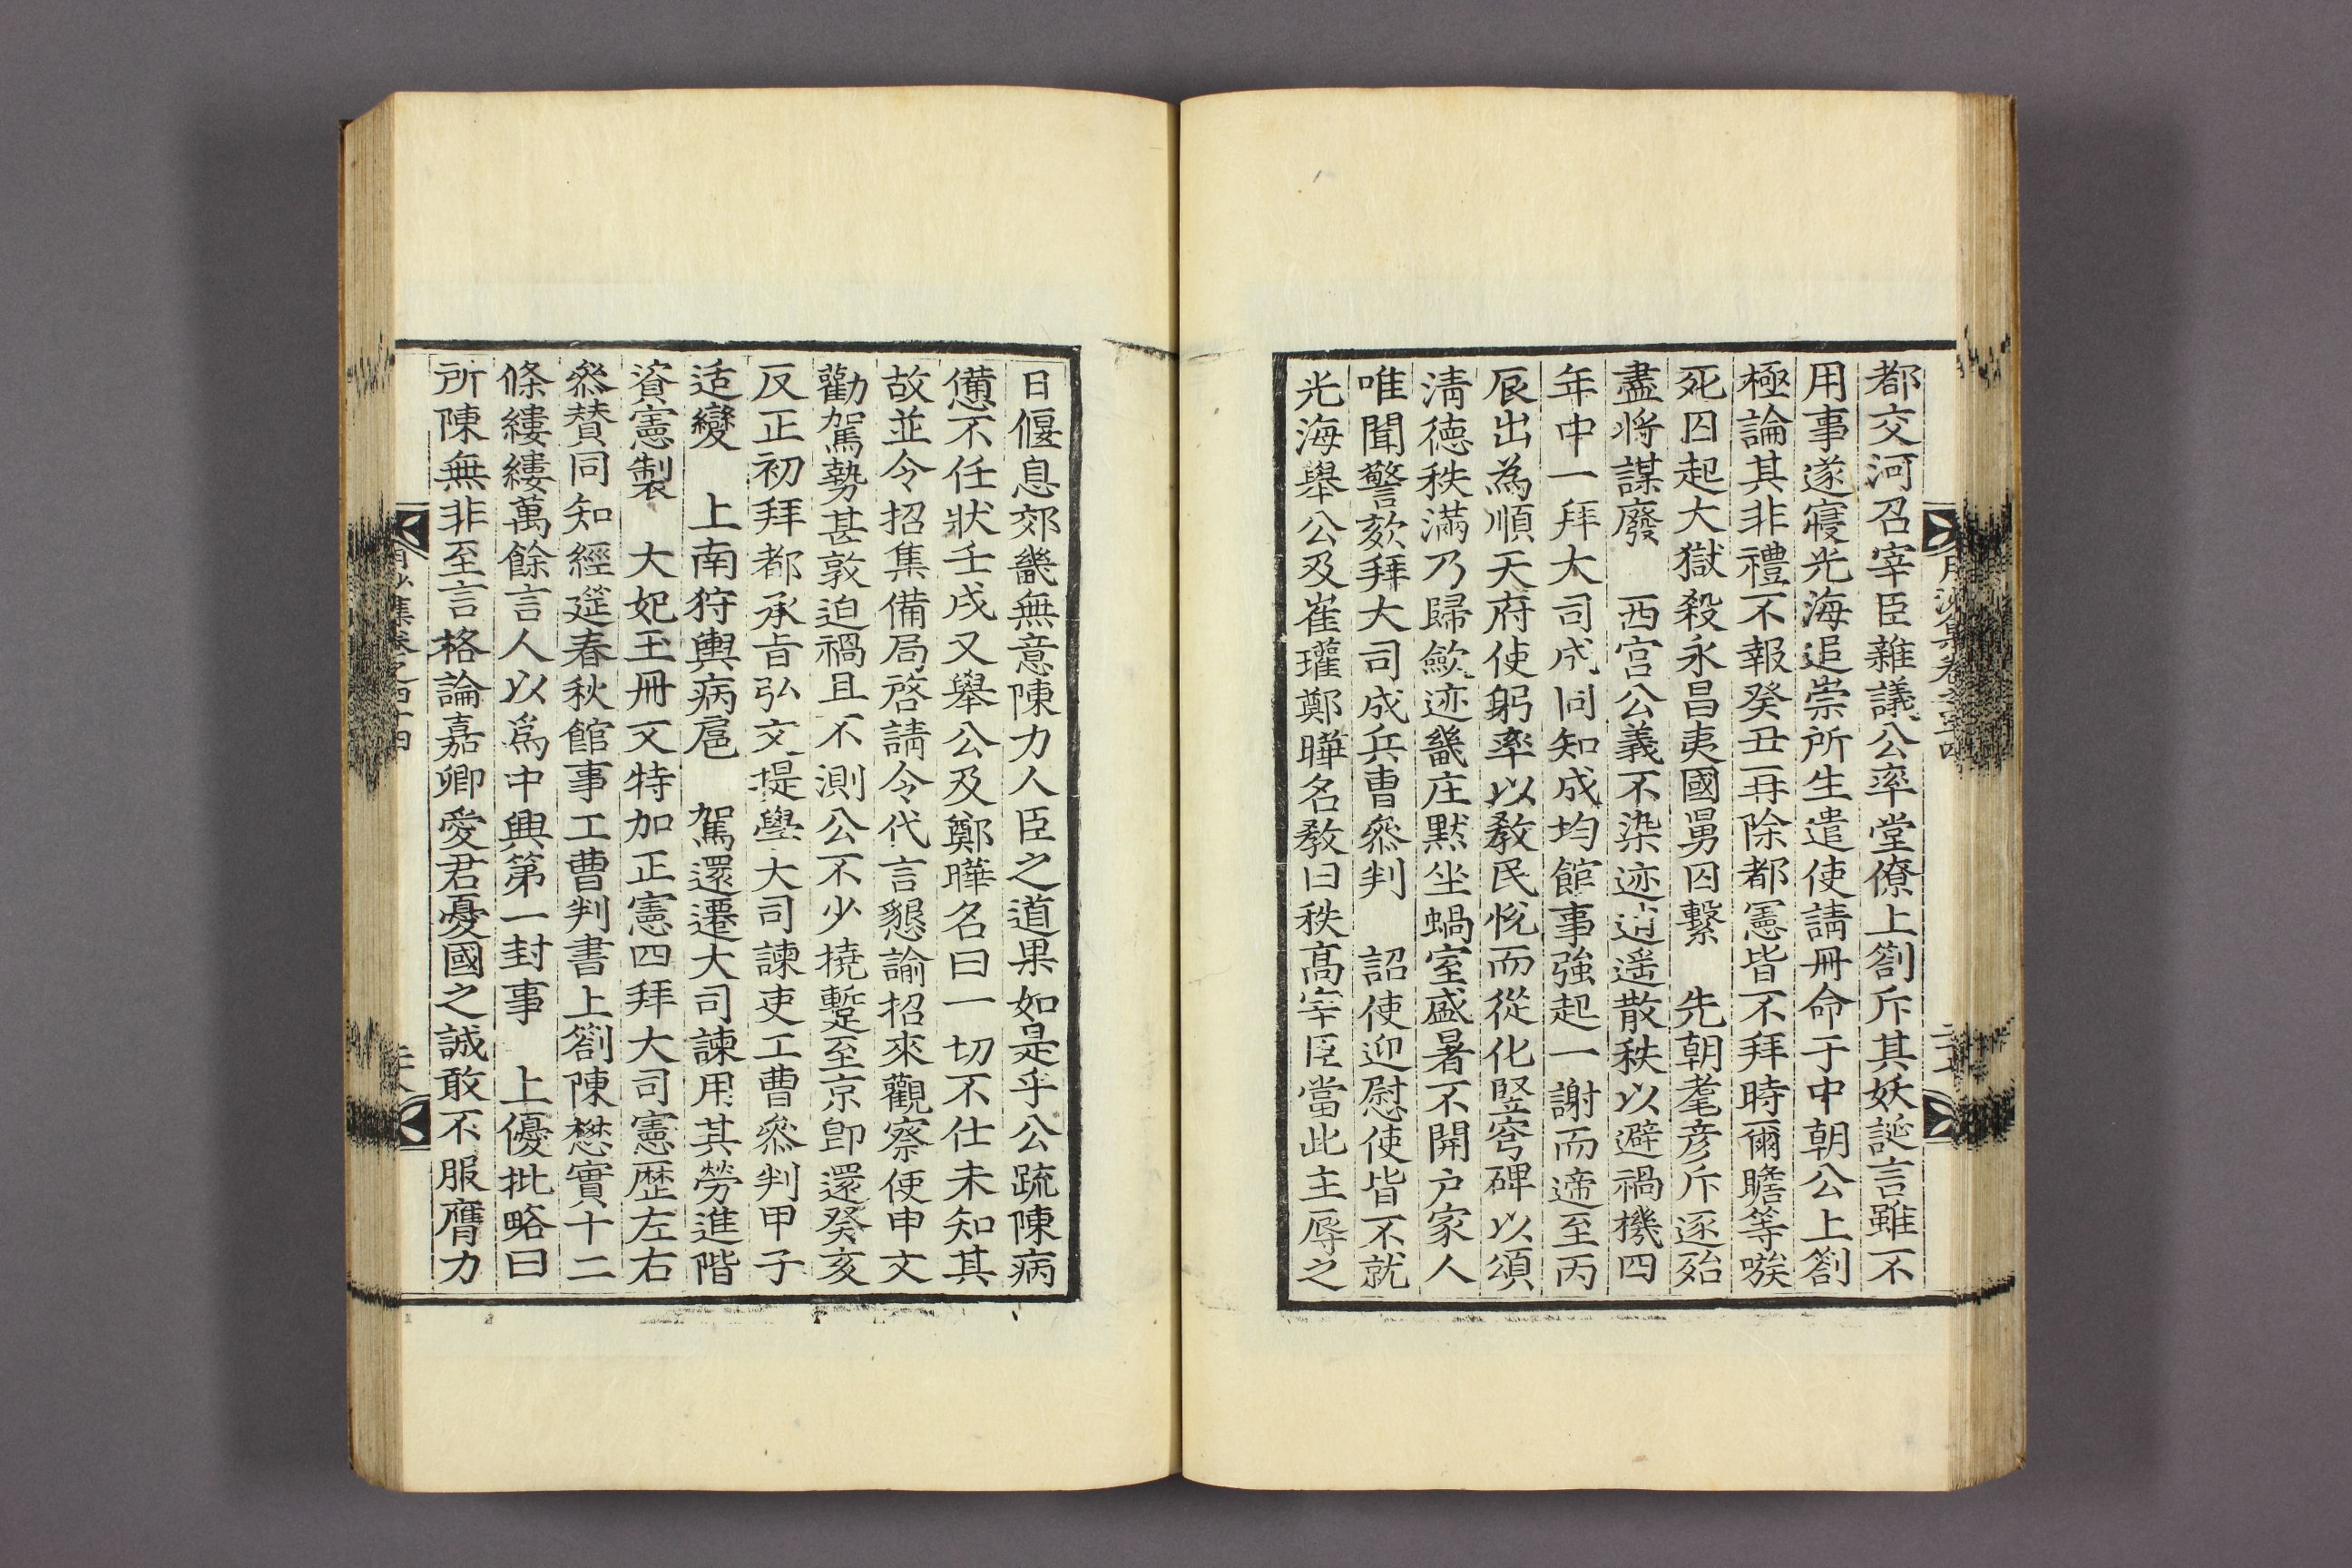 都交河召宰臣雜議公率堂僚上劄斥其妖誕言雖不
用事遂寢光海追崇所生遣使請冊命于中朝公上劄
極論其非禮不報癸丑再除都憲皆不拜時爾瞻等嗾
死囚起大獄殺永昌夷國舅囚繫　先朝耄彦斥逐殆
盡將謀廢　西宮公義不染迹逍遥散秩以避禍機四
年中一拜大司成同知成均館事強起一謝而遞至丙
辰出為順天府使躬率以教民悅而從化竪穹碑以頌
淸德秩滿乃歸斂迹畿庄默坐蝸室盛暑不開户家人
唯聞警欬拜大司成兵曹叅判　詔使迎慰使皆不就
光海舉公及崔瓘鄭曄名教曰秩高宰臣當此主辱之
日偃息郊畿無意陳力人臣之道果如是乎公䟽陳病
憊不任狀壬戌又舉公及鄭曄名曰一切不仕未知其
故並令招集備局啓請令代言懇諭招來觀察使申文
勸駕勢甚敦迫禍且不測公不少撓蹔至京卽還癸亥
反正初拜都承旨弘文提學大司諫吏工曹叅判甲子
适變　上南狩輿病扈　駕還遷大司諫用其勞進階
資憲製　大妃玉冊文特加正憲四拜大司憲歷左右
叅賛同知經筵春秋館事工曹判書上劄陳懋實十二
條縷縷萬餘言人以爲中興第一封事　上優批略曰
所陳無非至言格論嘉卿愛君憂國之誠敢不服膺力